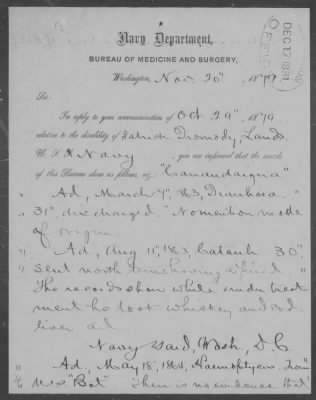 Navy Department,
BUREAU OF MEDICINE AND SURGERY,
DEC 17 1881
Washington, Nov. 20" 1879
Sir:
In reply to your communication of Oct 29" 1879
relative to the disability of Patrick Dromody, Lands
U. S. Navy, you are informed that the records
of this Bureau show as follows, viz: "Canandaigua"
Ad, March 7", 1863, Diarrhoea.
31", discharged. "No mention made
of origin.
" Ad, Aug 11", 1863, Catarrh 30",
" sent north time having expired. "
" The records show while under treat
ment he took whiskey and
liver oil
Navy Yard, Wash, D. C.
" Ad, May 18", Haemoptysis, from
" U.S.S "Bat". There is no evidence that